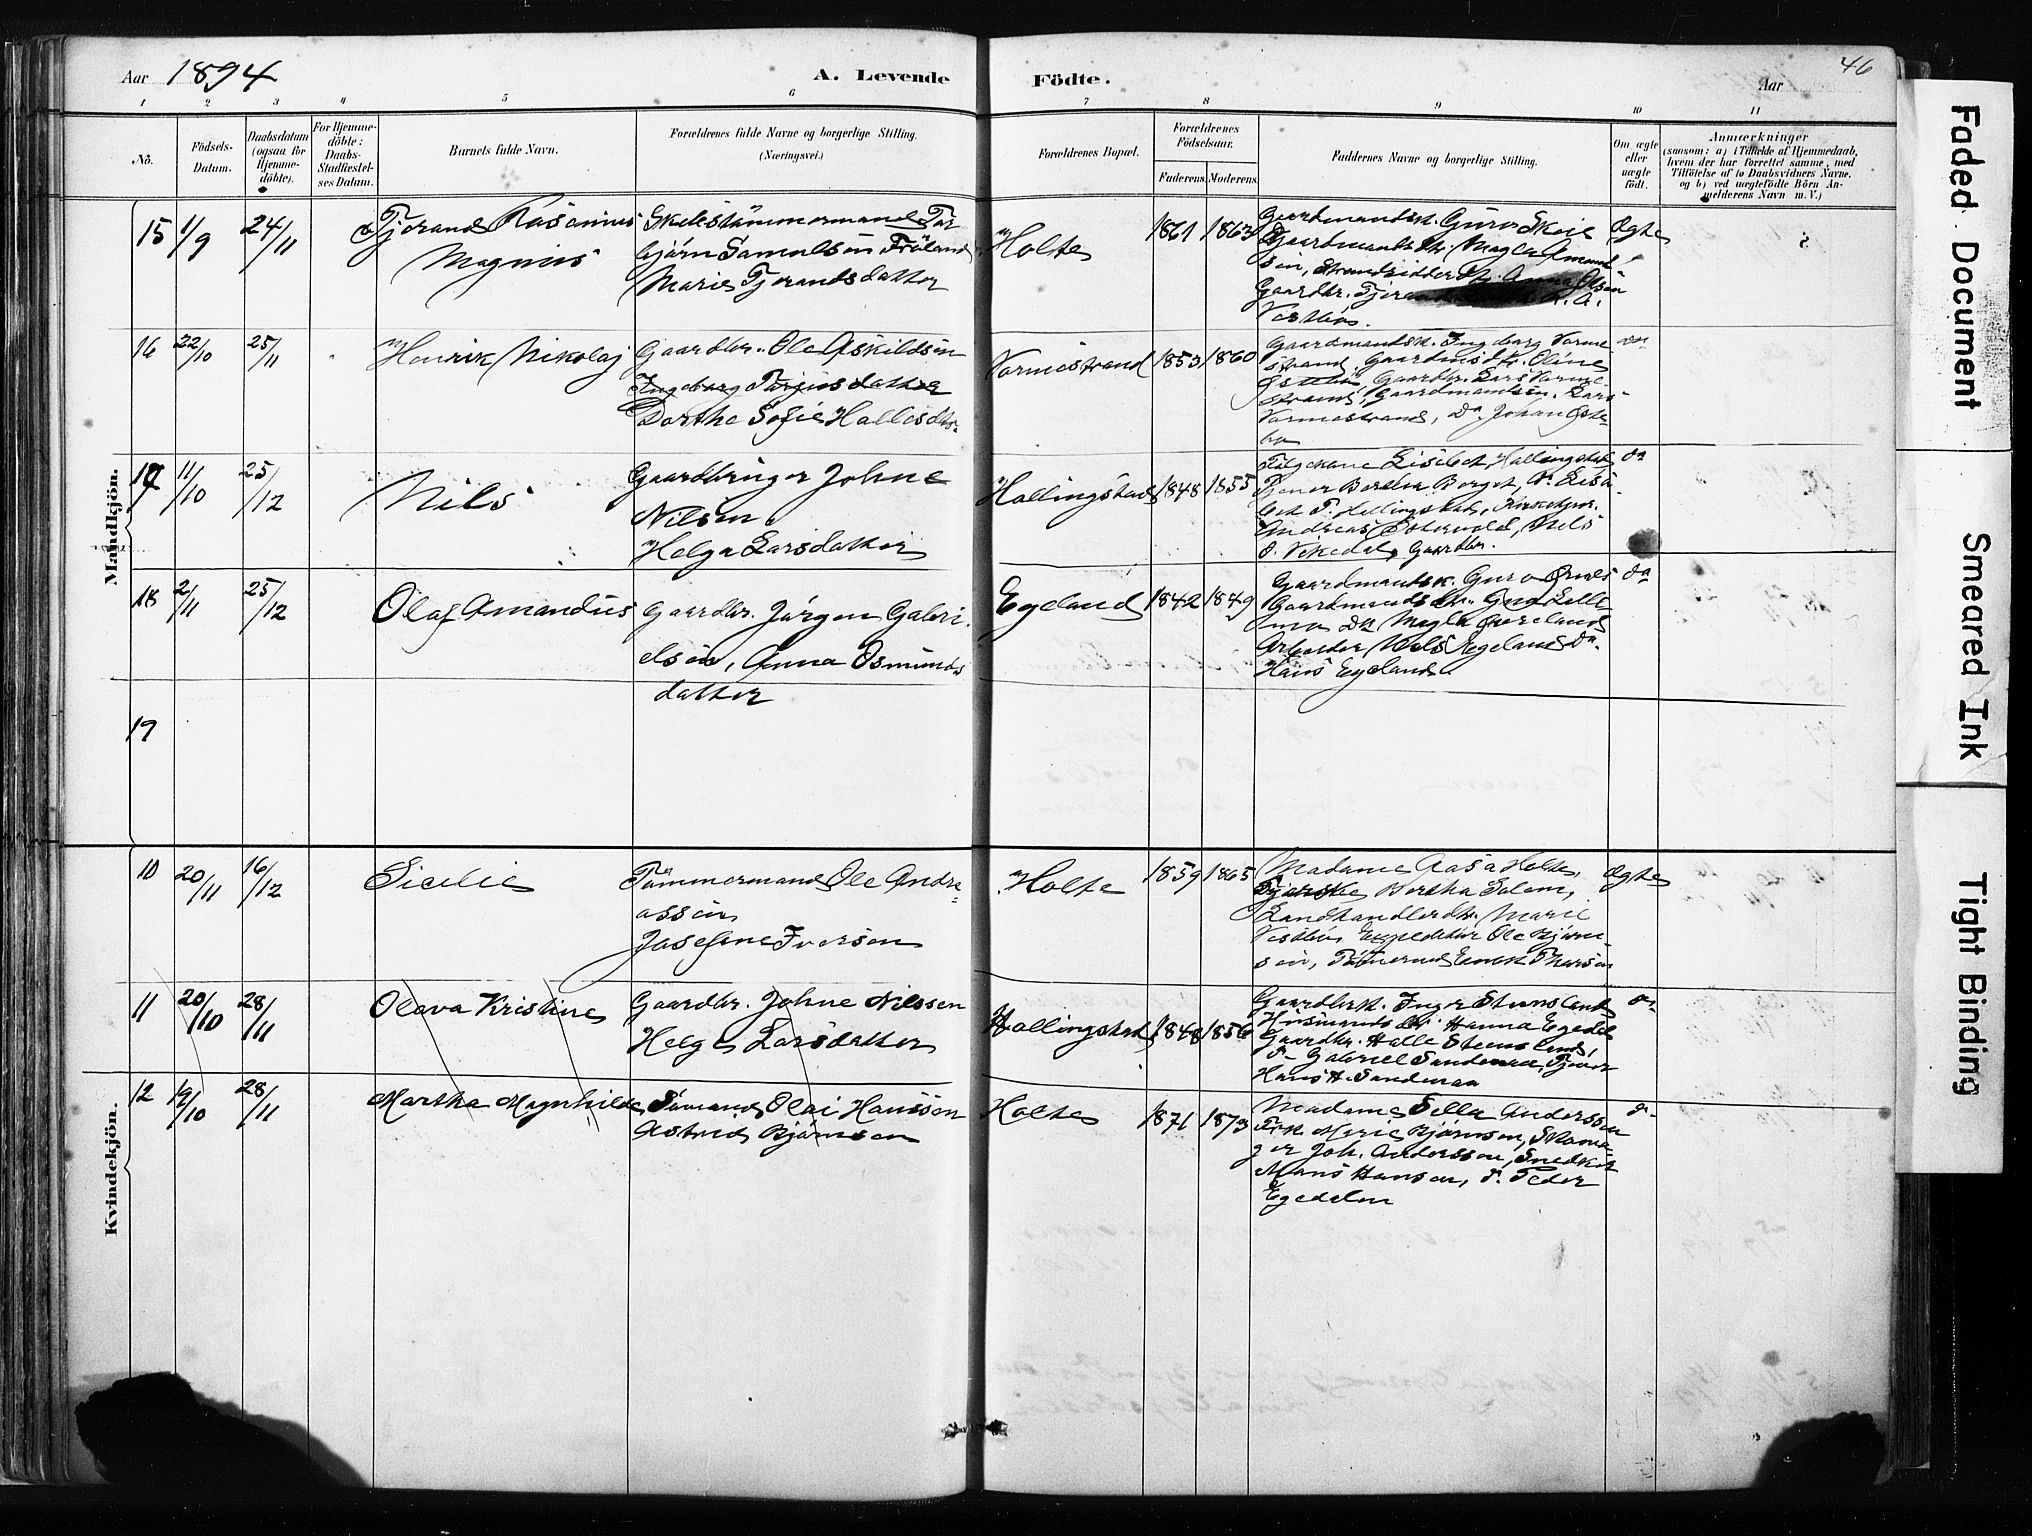 Aar 1894
A. Levende
Födte.
Aar
46
1 2 3 4 5 6 7 8 9 10 11
No.
Födsels-
Datum.
Daabsdatum
(ogsaa for
Hjemme-
döbte).
For Hjemme-
döbte:
Daabs-
Stadfæstel-
ses Datum.
Barnets fulde Navn.
Forældrenes fulde Navne og borgerlige Stilling.
(Næringsvei.)
Forældrenes Bopæl.
Forældrenes
Födselsaar.
Faderens. Moderens.
Faddernes Navne og borgerlige Stilling.
Om ægte
eller
uægte
födt.
Anmærkninger
(saasom: a) i Tilfælde af Hjemmedaab,
hvem der har forrettet samme, med
Tilföielse af to Daabsvidners Navne,
og b) ved uægtefödte Börn An-
melderens Navn m. V.)
Mandkjön.
15 11/9 24/11
Tjerand Rasmus
Magnus
Skibstömmermand Tor
björn Samuelsen Fröland
Marie Tjerandsdatter
Holte
1861 1863
Gaardmandsk. Guro Skeie
Gaardmandsdtr. Magla Amund
sen, Strandsidder Anna Olsen
Gaardbr. Tjerand
Vestbö.
Ægte
16 22/10 25/11
Henrik Nikolaj
Gaardbr. Ole Askildsen
Ingeborg Tarjesdatter
Dorthe Sofie Hallesdtr.
Vormestrand
1853 1860
Gaardmandsk. Ingeborg Vorme
strand, Gaardmdsk. Oline
Östebö, Gaardbr. Lars Vorme
strand, Gaardmandssön. Lars
Vormestrand, Do. Johan Öste
bö
do
17 11/10 25/12
Nils
Gaardbruger Johne
Nilsen
Helga Larsdatter
Hallingstad
1848 1855
Lisebet Hallingstad
Tjener Berthe Berget, Do. Lisa
bet T. Hallingstad, Kirketjen.
Andreas Nils
O. Vikedal, Gaardbr.
do
18 2/11 25/12
Olaf Amandus
Gaardbr. Jörgen Gabri
elsen, Anna Osmunds
datter
Egeland
1842 1849
Gaardmandsk. Guro Ørnes
Gaardmandsdtr.
Do Magla
Arbeider Nils Egeland Do.
Hans Egeland
do
19
Kvindekjön.
10 20/11 16/12
Sicelie
Tömmermand Ole Andre
assen
Josefine Iversen
Holte
1859 1865
Madame Aasa Holte,
Bertha Salem,
Landhandlerdtr. Marie
Vestbö, Expeditör Ole Björn
sen, Tömmermd Enok Tharsen
Ægte
11 20/10 28/11
Olava Kristine
Gaardbr. Johne Nilssen
Helge Larsdatter
Hallingstad
1848 1856
Gaardbrk. Inger Stensland
Husmandsdtr. Hanna Egedal
Gaardbr. Halle Stensland,
do Gabriel Sandenaa, Tjener
Hans H. Sandenaa
do
12 19/10 28/11
Martha Magnhilde
Sömand Olai Hanssen
Astrid Björnsen
Holte
1871 1873
Madame Sella Anderssen
Frk. Marie Björnson, Skoma
ger Joh. Anderssen, Snedker
Mons Hansen, do Peder
Egedalen
do
Faded Document
Smeared Ink
Tight Binding